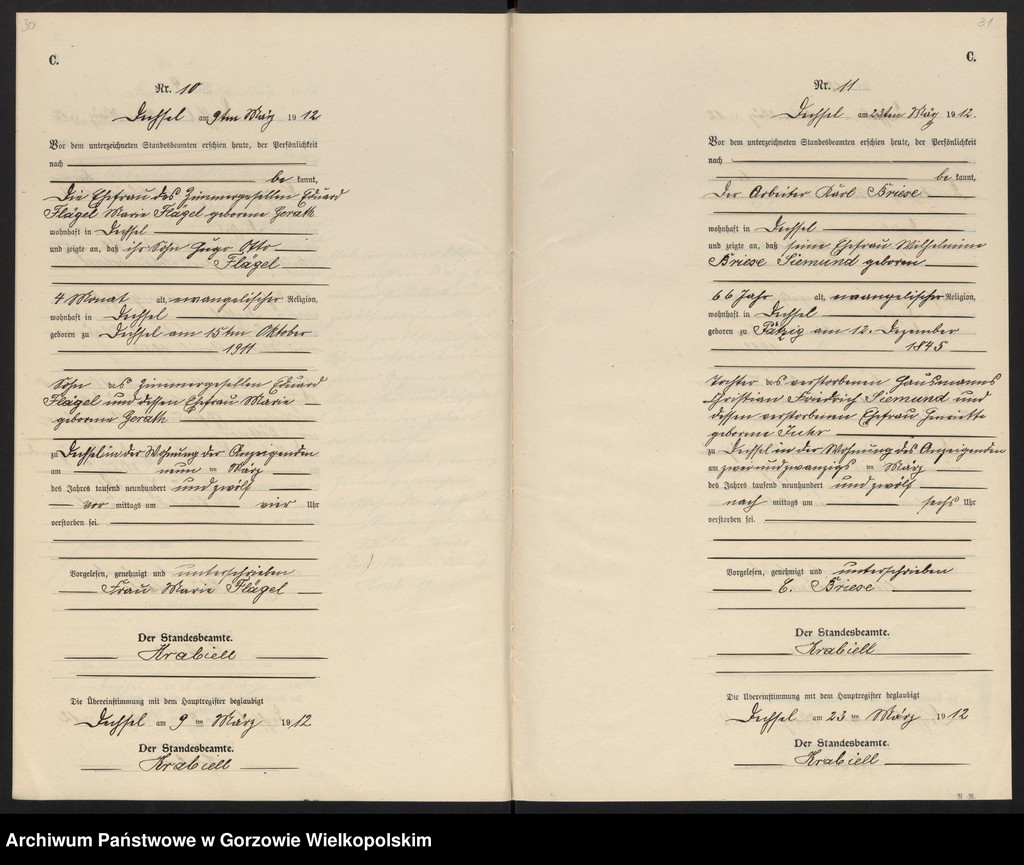 30
C.
Nr. 10
Dechsel am 9ten März 1912
Vor dem unterzeichneten Standesbeamten erschien heute, der Persönlichkeit
nach
be kannt,
Die Ehefrau des Zimmergesellen Eduard
Flägel Marie Flägel geborene Gerath
wohnhaft in Dechsel
und zeigte an, daß ihr Sohn Hugo Otto
Flägel
4 Monat alt, evangelischer Religion,
wohnhaft in Dechsel
geboren zu Dechsel am 15ten Oktober
1911
Sohn des Zimmergesellen Eduard
Flägel und dessen Ehefrau Marie
geborene Gerath
zu Dechsel in der Wohnung der Anzeigenden
am neun ten März
des Jahres tausend neunhundert und zwölf
vor mittags um vier Uhr
verstorben sei.
Vorgelesen, genehmigt und unterschrieben
Frau Marie Flägel
Der Standesbeamte.
Krabiell
Die Übereinstimmung mit dem Hauptregister beglaubigt
Dechsel am 9 ten März 1912
Der Standesbeamte.
Krabiell
31
C.
Nr. 11
Dechsel am 23ten März 1912.
Vor dem unterzeichneten Standesbeamten erschien heute, der Persönlichkeit
nach
be kannt,
Der Arbeiter Karl Briese
wohnhaft in Dechsel
und zeigte an, daß seine Ehefrau Wilhelmine
Briese Siemund geboren
66 Jahr alt, evangelischer Religion,
wohnhaft in Dechsel
geboren zu Pätzig am 12. Dezember
1845
Tochter des verstorbenen Hausmanns
Christian Friedrich Siemund und
dessen verstorbenen Ehefrau Henriette
geborene
zu Dechsel in der Wohnung des Anzeigenden
am zwei und zwanzigs ten März
des Jahres tausend neunhundert und zwölf
nach mittags um sechs Uhr
verstorben sei.
Vorgelesen, genehmigt und unterschrieben
C. Briese
Der Standesbeamte.
Krabiell
Die Übereinstimmung mit dem Hauptregister beglaubigt
Dechsel am 23 ten März 1912
Der Standesbeamte.
Krabiell
Archiwum Państwowe w Gorzowie Wielkopolskim